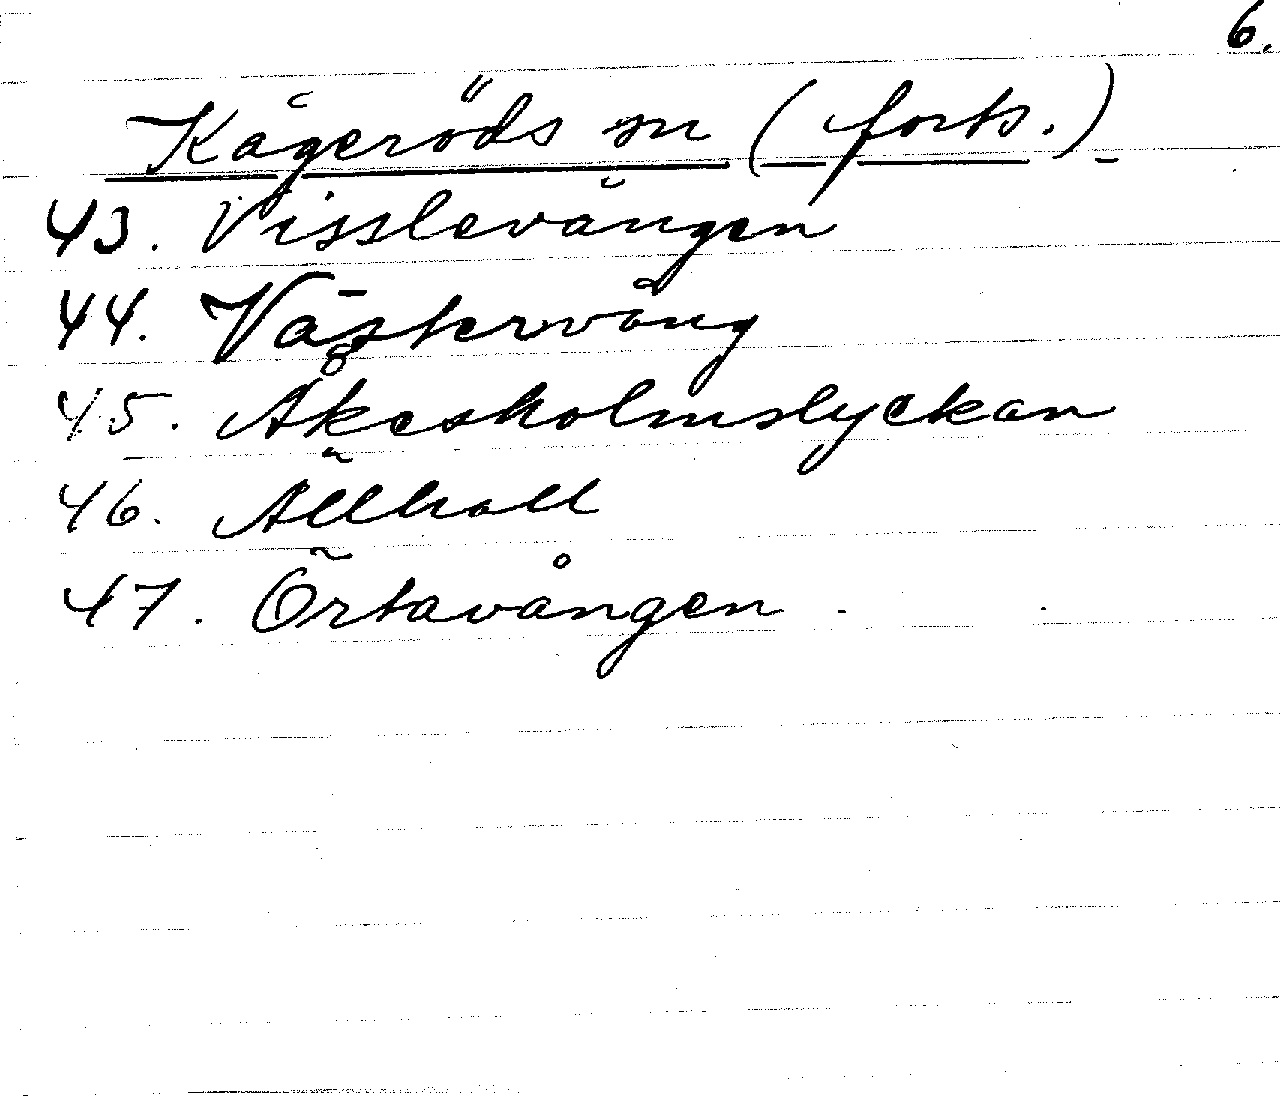 6.
Kågeröds sn (forts.)
43. Visslevången
44. Västervång
45. Åkesholmslyckan
46. Ällhall
47. Örtavången